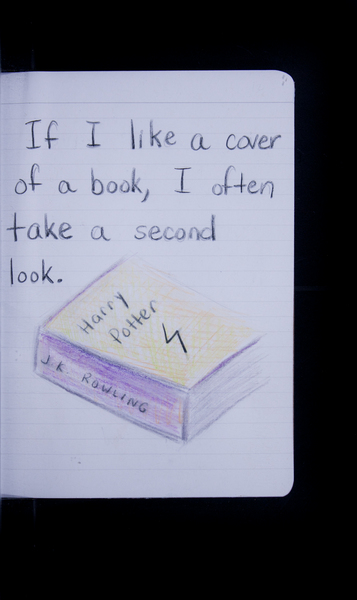 If I like a cover
of a book, I often
take a second
look.
Harry
Potter
J.K. ROWLING